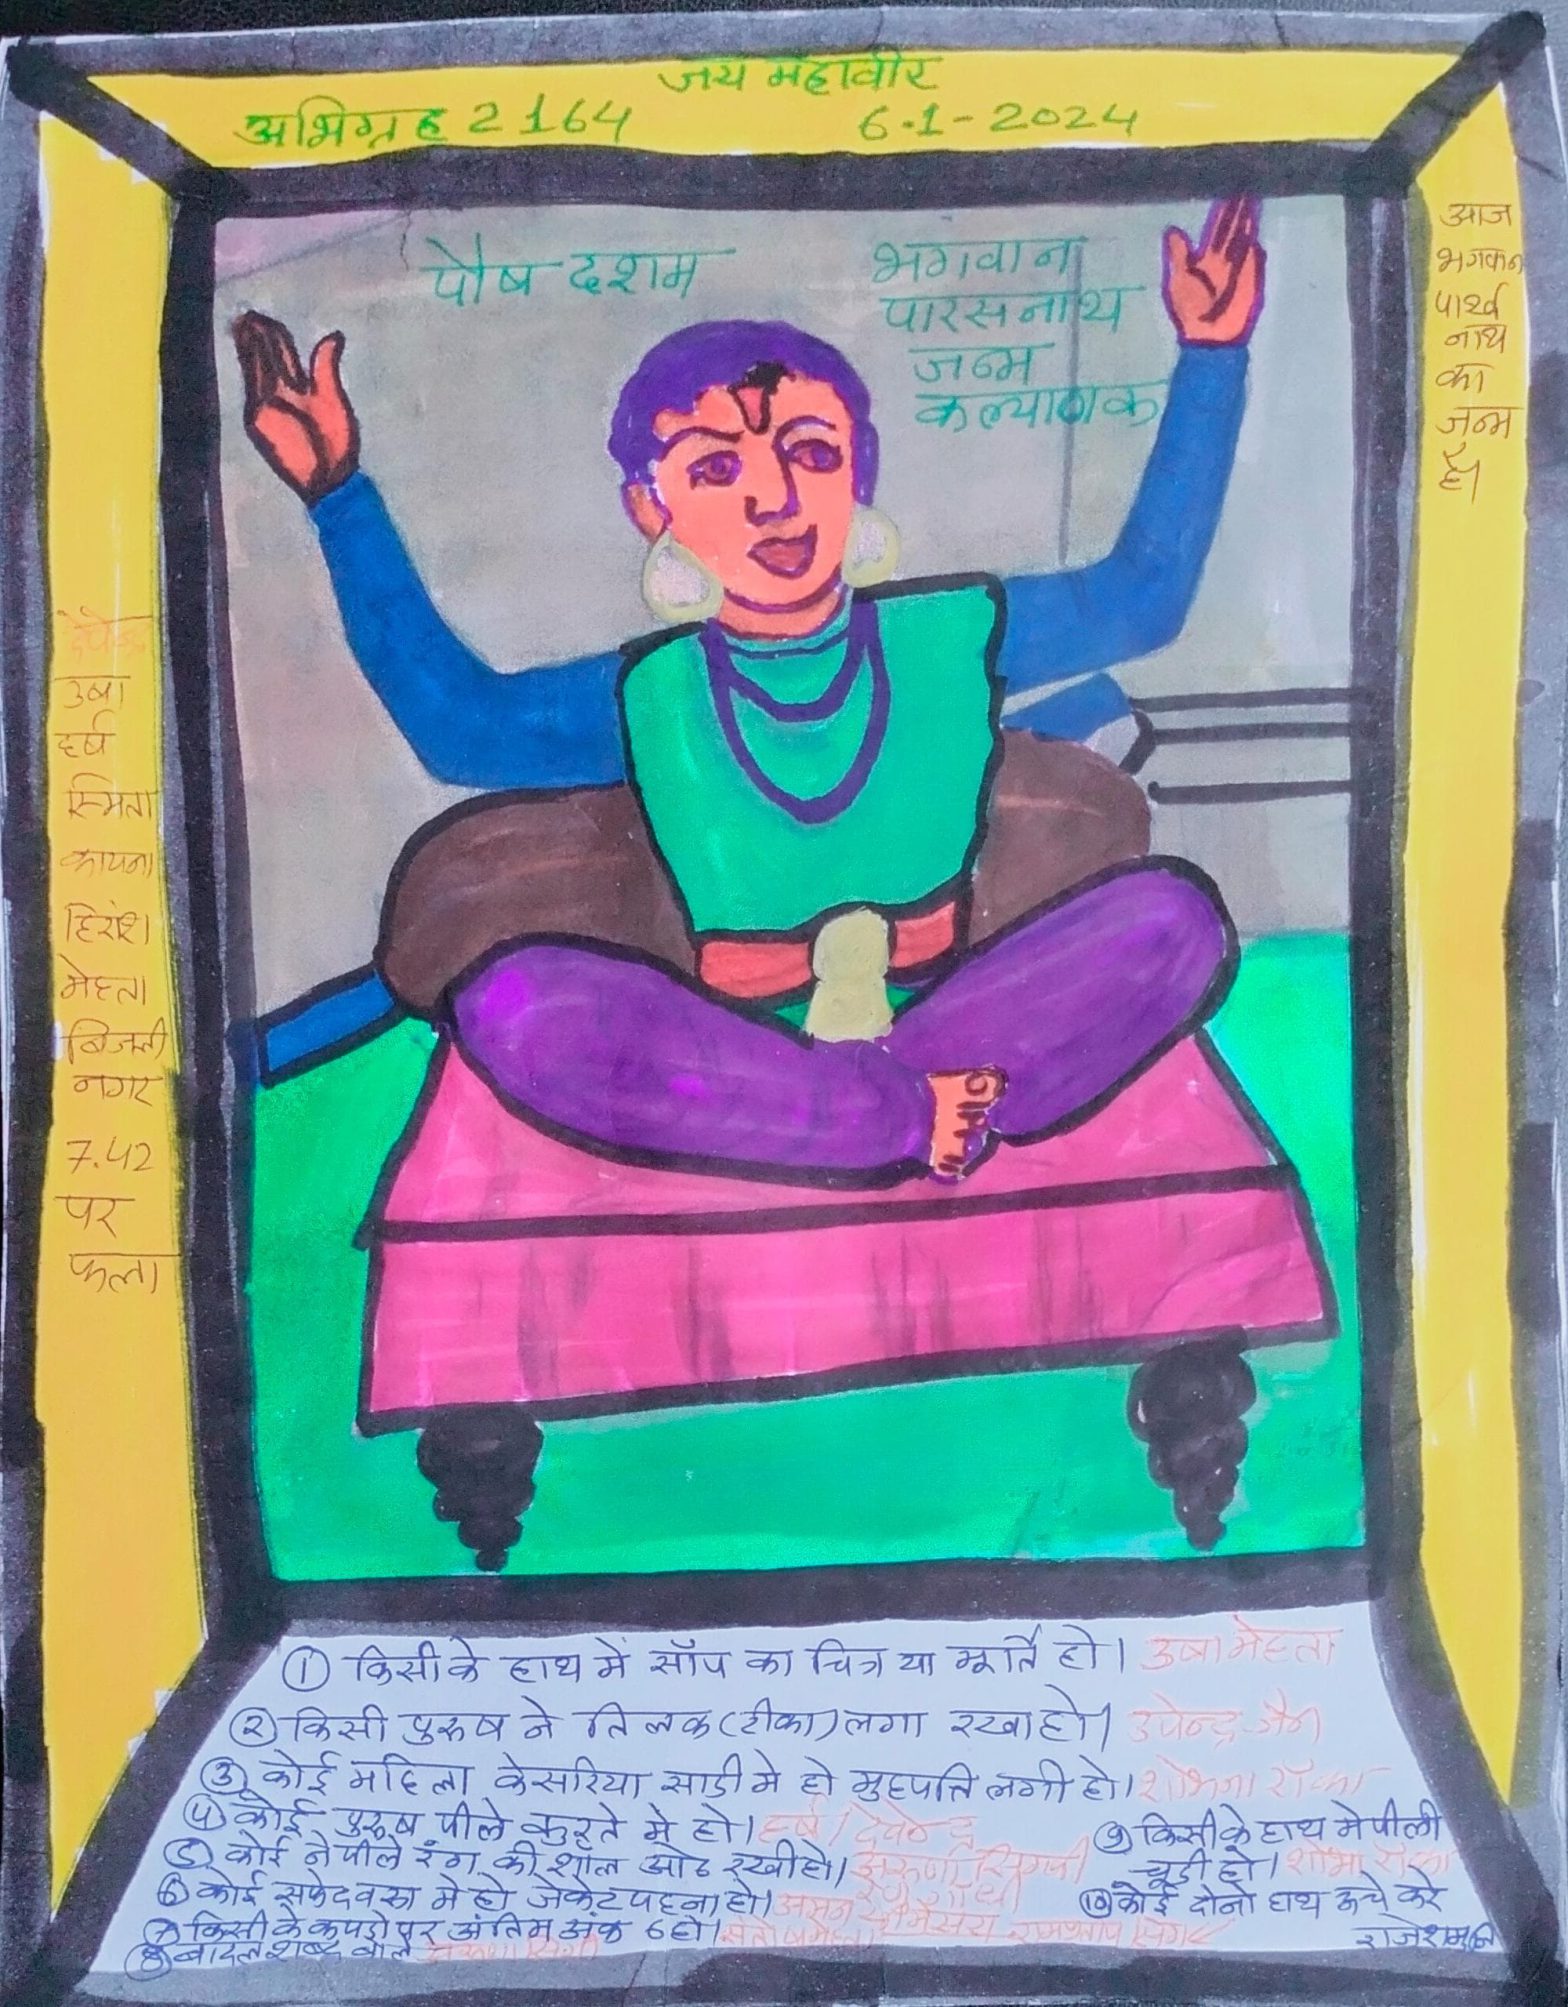 जय महावीर
अभिग्रह 2164
6-1-2024
पौष दशम
भगवान
पारसनाथ
जन्म
कल्याणक
आज
भगवान
पार्श्व
नाथ
का
जन्म
है।
उषा
हर्ष
स्मिता
हिरांश
मेहता
बिजली
नगर
7.42
पर
फला
① किसी के हाथ में साँप का चित्र या मूर्ति हो। उषा मेहता
② किसी पुरुष ने तिलक (टीका) लगा रखा हो। उपेन्द्र जैन
③ कोई महिला केसरिया साडी मे हो मुहपति लगी हो। शोभना राँका
④ कोई पुरुष पीले कुरते मे हो। हर्ष / देवेन्द्र
⑤ कोई ने पीले रंग की शॉल ओढ रखी हो।
⑥ कोई सफेद वस्त्र मे हो जेकेट पहना हो।
⑦ किसी के कपडो पर अंतिम अंक 6 हो।
⑧ बादल शब्द बोले
⑨ किसी के हाथ मे पीली
चूडी हो। शोभा राँका
⑩ कोई दोनो हाथ ऊचे करे
राजेश मुनि